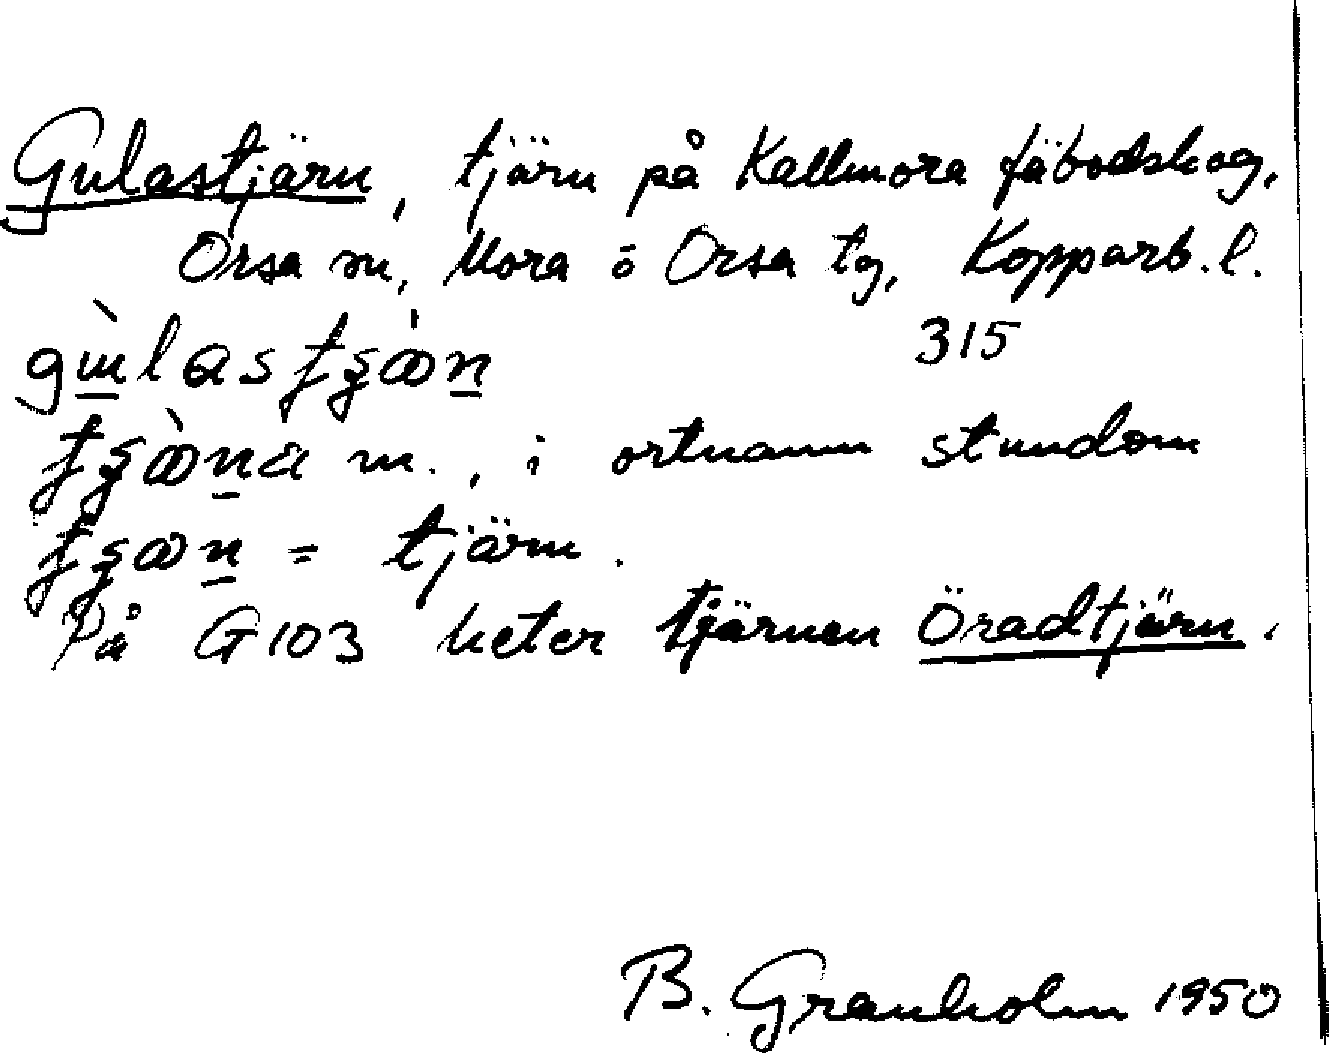 Gulastjärn, tjärn på Kallmora fäbodskog,
Orsa sn, Mora o Orsa tg, Kopparb. l.
315
i ortnamn stundom
= tjärn.
På G 103 heter tjärnen Öradtjärn.
B. Granholm 1950